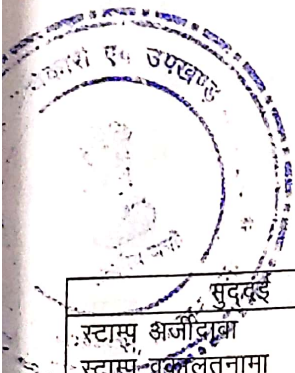 एवं उपखण्ड
मुददई
स्टाम्प अर्जीदावा
स्टाम्प वकालतनामा